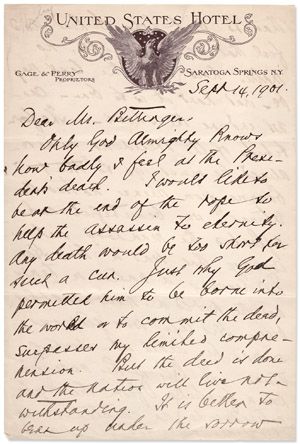 UNITED STATES HOTEL
GAGE & PERRY
PROPRIETORS
SARATOGA SPRINGS N.Y.
Sept 14, 1901.
Dear Mr. Bittinger,
Only God Almighty knows
how badly I feel at the Presi-
dent's death. I would like to
be at the end of the rope to
help the assassin to eternity.
Any death would be too short for
such a cur. Just why God
permitted him to be borne into
the world or to commit the deed,
surpasses my limited compre-
hension. But the deed is done
and the nation will live not-
withstanding. It is better to
bear up under the sorrow